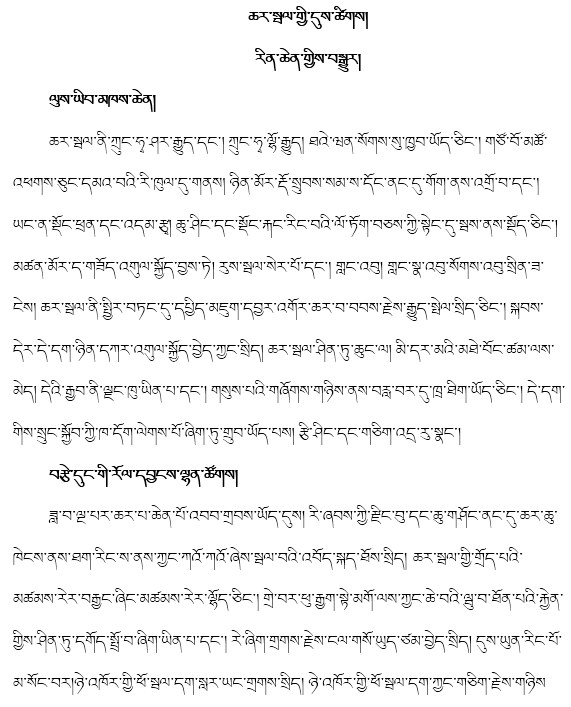 ཆར་སྦལ་གྱི་དུས་ཚིགས།
རིན་ཆེན་གྱིས་བསྒྱུར།
ལུས་ཡིབ་མཁས་ཆེན།
ཆར་སྦལ་ནི་ཀྲུང་ཧྭ་ཤར་རྒྱུད་དང་། ཀྲུང་ཧྭ་ལྷོ་རྒྱུད། ཐའེ་ཝན་སོགས་སུ་ཁྱབ་ཡོད་ཅིང་། གཙོ་བོ་མཚོ་
འཕགས་ཅུང་དམའ་བའི་རི་ཁུལ་དུ་གནས། ཉིན་མོར་རྡོ་སྲུབས་སམ་ས་དོང་ནང་དུ་གོག་ནས་འགྲོ་བ་དང་།
ཡང་ན་སྡོང་ཕྲན་དང་འདམ་རྩྭ། ཆུ་ཤིང་དང་སྡོང་རྐང་རིང་བའི་ལོ་ཏོག་བཅས་ཀྱི་སྟེང་དུ་སྦས་ནས་སྡོད་ཅིང་།
མཚན་མོར་ད་གཟོད་འགུལ་སྐྱོད་བྱས་ཏེ། རུས་སྦལ་སེར་པོ་དང་། གླང་འབུ། གླང་སྣ་འབུ་སོགས་འབུ་སྲིན་ཟ་
ངེས། ཆར་སྦལ་ནི་སྤྱིར་བཏང་དུ་དཔྱིད་མཇུག་དབྱར་འགོར་ཆར་བ་བབས་རྗེས་རྒྱུད་སྤེལ་སྲིད་ཅིང་། སྐབས་
དེར་དེ་དག་ཉིན་དཀར་འགུལ་སྐྱོད་བྱེད་ཀྱང་སྲིད། ཆར་སྦལ་ཤིན་ཏུ་ཆུང་ལ། མི་དར་མའི་མཐེ་བོང་ཚམ་ལས་
མེད། དེའི་རྒྱབ་ནི་ལྗང་ཁུ་ཡིན་པ་དང་། གསུས་པའི་གཞོགས་གཉིས་ནས་བརླ་བར་དུ་ཁྲ་ཐིག་ཡོད་ཅིང་། དེ་དག་
གིས་སྲུང་སྐྱོབ་ཀྱི་ཁ་དོག་ལེགས་པོ་ཞིག་ཏུ་གྲུབ་ཡོད་པས། རྩི་ཤིང་དང་གཅིག་འདྲ་རུ་སྣང་།
བརྩེ་དུང་གི་རོལ་དབྱངས་ལྷན་ཚོགས།
ཟླ་བ་ལྔ་པར་ཆར་པ་ཆེན་པོ་འབབ་གྲབས་ཡོད་དུས། རི་ཞབས་ཀྱི་རྫིང་བུ་དང་ཆུ་གཤོང་ནང་དུ་ཆར་ཆུ་
ཁེངས་ནས་ཐག་རིང་ས་ནས་ཀྱང་ཀའོ་ཀའོ་ཞེས་སྦལ་བའི་འབོད་སྐད་ཐོས་སྲིད། ཆར་སྦལ་གྱི་གྲོད་པའི་
མཚམས་རེར་བརྒྱང་ཞིང་མཚམས་རེར་ལྷོད་ཅིང་། གྲེ་བར་ཕུ་རྒྱག་སྟེ་མགོ་ལས་ཀྱང་ཆེ་བའི་ལྦུ་བ་ཐོན་པའི་རྐྱེན་
གྱིས་ཤིན་ཏུ་དགོད་སྤྲོ་བ་ཞིག་ཡིན་པ་དང་། རེ་ཞིག་གྲགས་རྗེས་ངལ་གསོ་ཡུད་ཙམ་བྱེད་སྲིད། དུས་ཡུན་རིང་པོ་
མ་སོང་བར།ཉེ་འཁོར་གྱི་ཕོ་སྦལ་དག་སླར་ཡང་གྲགས་སྲིད། ཉེ་འཁོར་གྱི་ཕོ་སྦལ་དག་ཀྱང་གཅིག་རྗེས་གཉིས